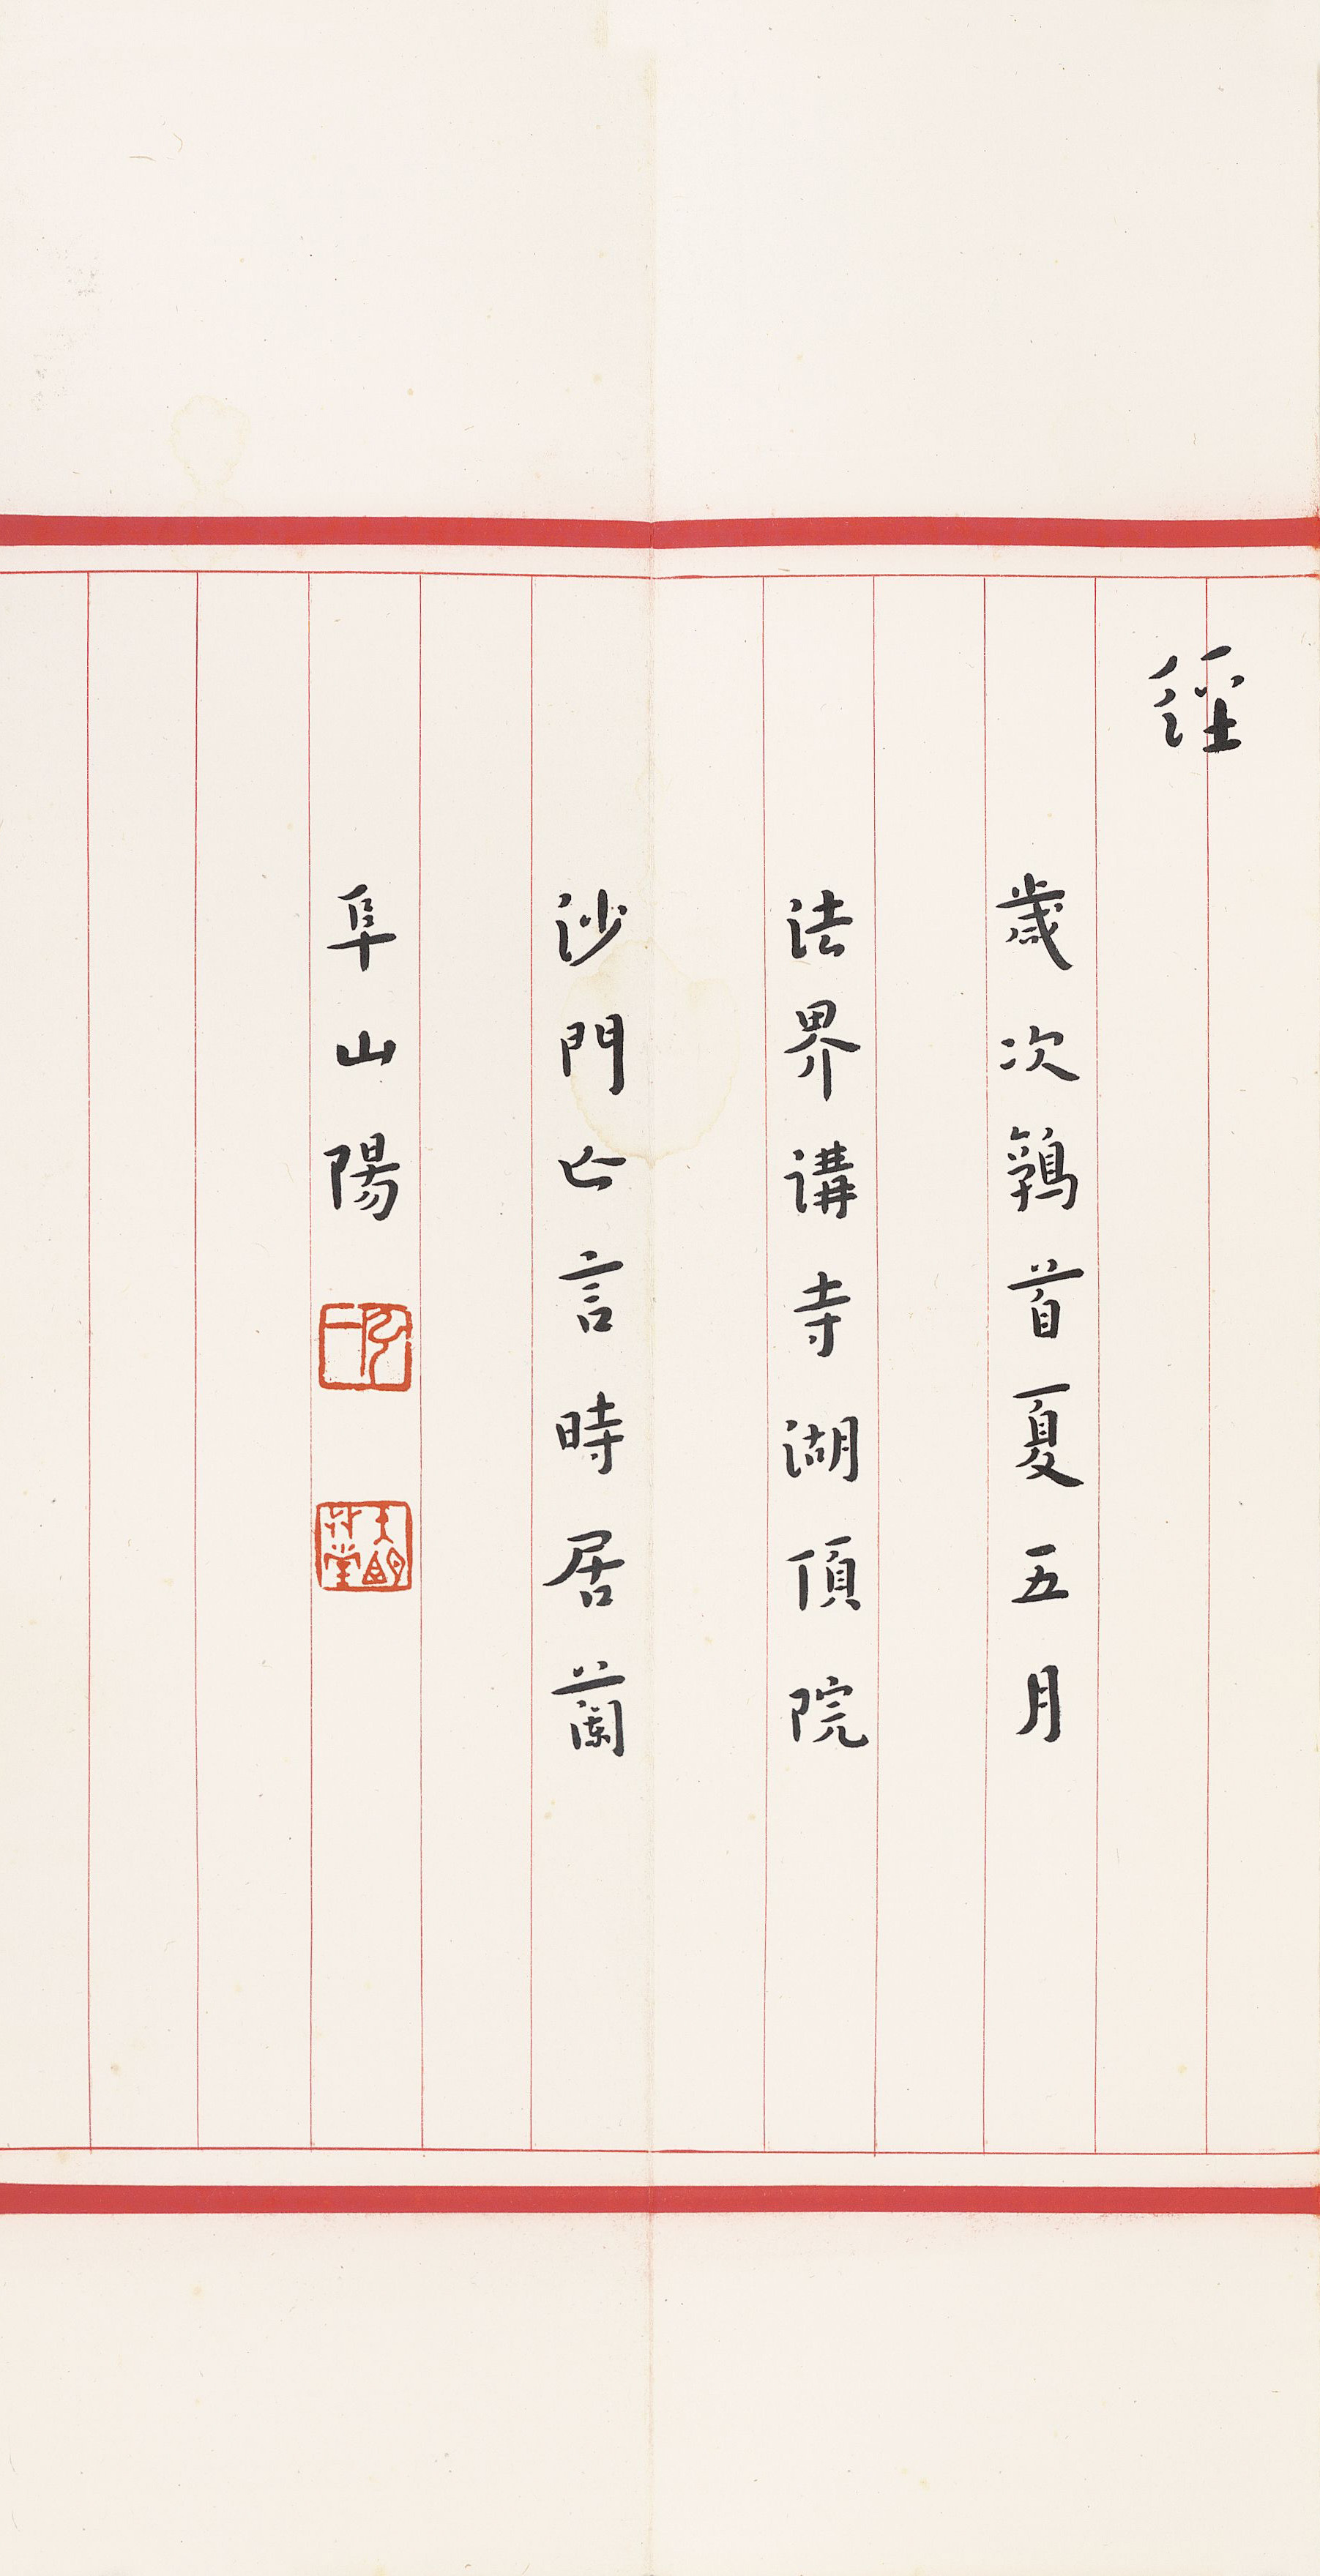 經
歲次鶉首夏五月
法界講寺湖頂院
沙門亾言時居蘭
阜山陽
弘一